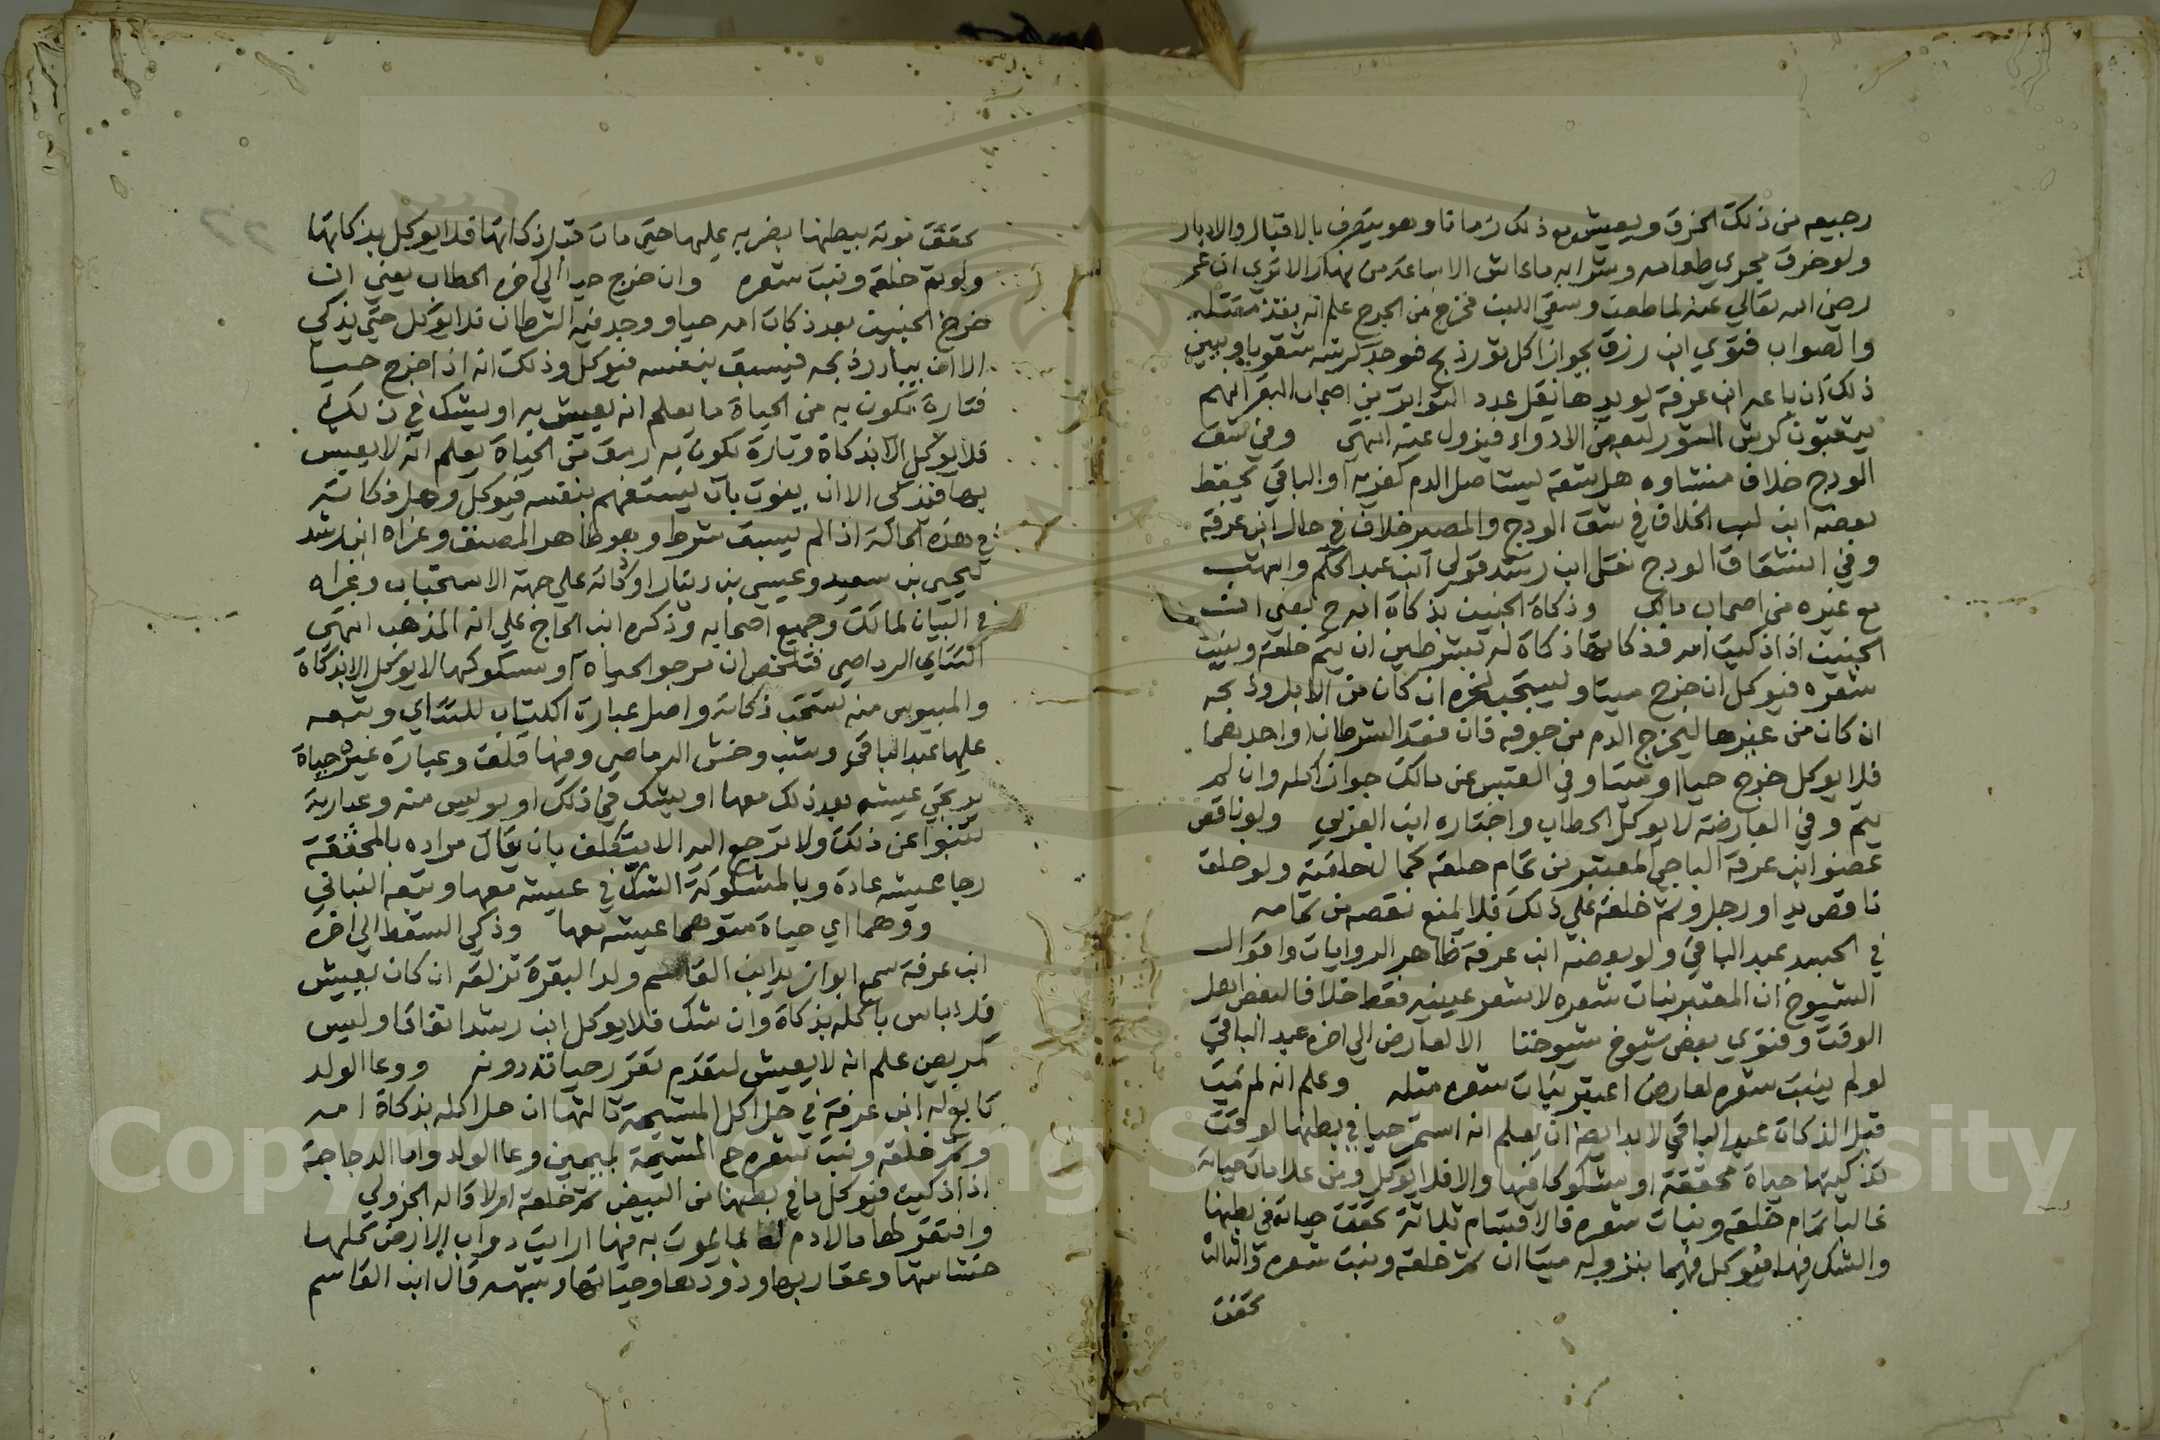 رجيعه من ذلك الخرق ويعيش مع ذلك زمانا وهو يتصرف بالاقبال والادبار
ولو خرق مجري طعامه وشرابه ما عاش الا ساعة من نهار الا تري ان عمر
رضي الله تعالي عنه لما طعن وسقي اللبن فخرج من الجرح علم انه نفذ مقتله
والصواب فتوي ابن رزق بجواز اكل ثور ذبح فوجد كرشه مثقوبا ويبين
ذلك ان عرفة لو يرها نقل عدد التواتر من اصحاب البقر انهم
يثقبون كرش الثور لبعض الادواء فيزول عنه انتهي وفي شق
الودج خلاف منشاوه هل شقه يستاصل الدم كفريه او الباقي يحفظ
بعضه ابن لب الخلاف في شق الودج والمصير خلاف في حال ابن عرفة
وفي انشقاق الودج نقل ابن رشد قولي ابن عبد الحكم واشهب
مع غيره من اصحاب مالك وذكاة الجنين بذكاة امه ح يعني ان
الجنين اذا ذكيت امه فذكاتها ذكاة له بشرطين ان يتم خلقه وينبت
شعره فيوكل ان خرج ميتا ويستحب نحره ان كان من الابل وذبحه
ان كان من غيرها ليخرج الدم من جوفه فان فقد الشرطان او احدهما
فلا يوكل خرج حيا او ميتا وفي العتبي عن مالك جواز اكله وان لم
يتم وفي العارضة لا يوكل الحطاب واختاره ابن العربي ولو ناقص
عضو ابن عرفة الباجي المعتبر من تمام خلقه كمال خلقته ولو خلق
ناقص يد او رجل وتم خلقه علي ذلك فلا يمنع نقصه من تمامه
في الجسد عبد الباقي ولو بعضه ابن عرفة ظاهر الروايات واقوال
الشيوخ ان المعتبر نبات شعره لا شعر عينيه فقط خلافا لبعض اهل
الوقت وفتوي بعض شيوخ شيوخنا الا لعارض الي اخره عبد الباقي
لو لم ينبت شعره لعارض اعتبر نبات شعره مثله وعلم انه لم يمت
قبل الذكات عبد الباقي لا بد ايضا ان يعلم انه استمر حيا في بطنها لوقت
تذكيتها حياة محققة او مشكوكا فيها والا فلا يوكل ومن علامات حياته
غالبا تمام خلقه ونبات شعره فالاقسام ثلاثة تحقق حياته في بطنها
والشك فيها فيوكل فيهما بنزوله ميتا ان تم خلقه ونبت شعره والثالث
تحقق
تحقق موته ببطنها بضربه عليها حتي مات قبل ذكاتها فلا يوكل بذكاتها
ولو تم خلقه ونبت شعره وان خرج حيا الي اخره الحطاب يعني ان
خرج الجنين بعد ذكات امه حيا ووجد فيه الشرطان فلا يوكل حتي يذكي
الا ان يبادر ذبحه فيسبق بنفسه فيوكل وذلك انه اذا خرج حيا
فتارة يكون به من الحياة ما يعلم انه يعيش به او يشك في ذلك
فلا يوكل الا بذكاة وتارة يكون به رمق من الحياة يعلم انه لا يعيش
بها فتذكي الا ان يفوت بان يستفهم بنفسه فيوكل وهل ذكاته
في هذه الحالة اذا لم يسبق شرط وهو ظاهر المصنف وعزاه ابن رشد
ليحيي بن سعيد وعيسي بن دينار او ذكاته علي جهة الاستحباب وعزاه
في البيان لمالك وجميع اصحابه وذكره ابن الحاج علي انه المذهب انتهي
التتاي الرماصي فتلخص ان مرجو الحياة او مشكوكها لا يوكل الا بذكاة
والميوس منه تستحب ذكاته واصل عبارة الكتاب للتتاي وتبعه
عليها عبد الباقي وشب وخش الرماصي وفيها قلق وعبارة غيره حياة
يرتجي عيشه بعد ذلك معها او يشك في ذلك او يويس منه وعبارته
تنبوا عن ذلك ولا ترجع اليه الا بتكلف بان يقال مراده بالمحققة
رجا عيشه عادة وبالمشكوكة الشك في عيشه معها وتبعه البناني
ووهما اي حياة متوهما عيشه معها وذكي السقط الي اخره
ابن عرفة سمع ابوا زيد ابن القاسم ولد البقرة تزلقه ان كان يعيش
فلا باس باكله بذكاة وان شك فلا يوكل ابن رشد اتفاقا وليس
كمريض علم انه لا يعيش لتقدم تقرر حياته دونه ووعا الولد
تابع له ابن عرفة في حل اكل المشيمة ثالثها ان حل اكله بذكاة امه
وتم خلقه ونبت شعره ح المشيمة بميمين وعا الولد واما الدجاجة
اذا ذكيت فيوكل ما في بطنها من البيض تم خلقه ام لا قاله الجزولي
وافتقر لها ما لا دم له لما يموت به فيها ارايت دواب الارض كلها
خشاشها وعقاربها ودودها وحياتها وشبهه قال ابن القاسم